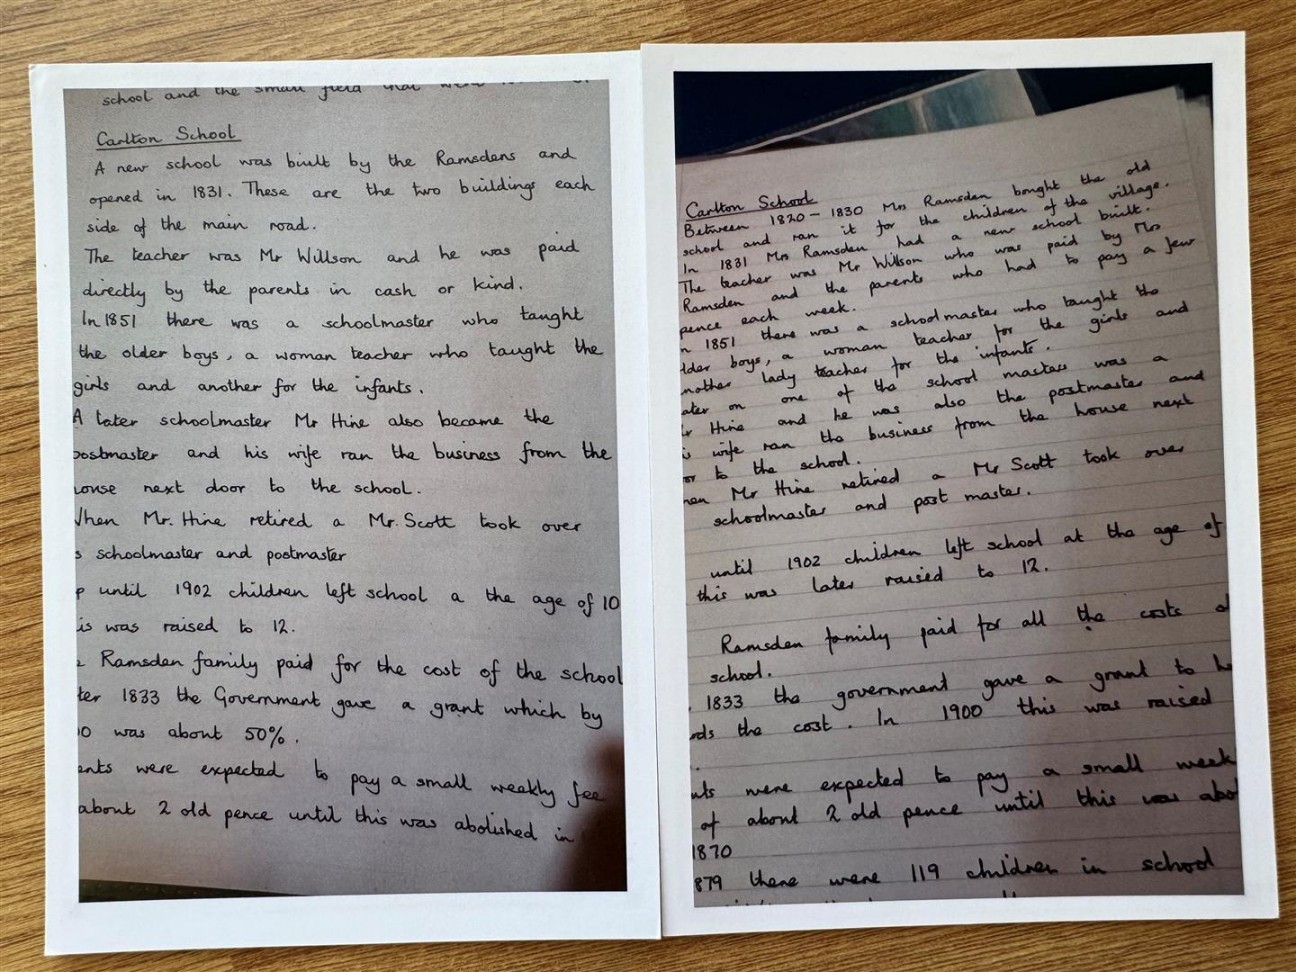 school and the small field that were
Carlton School
A new school was built by the Ramsdens and
opened in 1831. These are the two buildings each
side of the main road.
The teacher was Mr Willson and he was paid
directly by the parents in cash or kind.
In 1851 there was a schoolmaster who taught
the older boys, a woman teacher who taught the
girls and another for the infants.
A later schoolmaster Mr Hine also became the
postmaster and his wife ran the business from the
ouse next door to the school.
When Mr. Hine retired a Mr. Scott took over
s schoolmaster and postmaster
p until 1902 children left school a the age of 10
is was raised to 12.
e Ramsden family paid for the cost of the school
ter 1833 the Government gave a grant which by
0 was about 50%.
ents were expected to pay a small weekly fee
about 2 old pence until this was abolished in
Carlton School
Between 1820 - 1830 Mrs Ramsden bought the old
school and ran it for the children of the village.
In 1831 Mrs Ramsden had a new school built.
The teacher was Mr Willson who was paid by Mrs
Ramsden and the parents who had to pay a few
pence each week.
n 1851 there was a schoolmaster who taught the
lder boys, a woman teacher for the girls and
nother lady teacher for the infants.
ater on one of the school masters was a
r Hine and he was also the postmaster and
s wife ran the business from the house next
or to the school.
hen Mr Hine retired a Mr Scott took over
schoolmaster and post master.
until 1902 children left school at the age of
this was later raised to 12.
Ramsden family paid for all the costs o
school.
1833 the government gave a grant to he
rds the cost. In 1900 this was raised
nts were expected to pay a small week
of about 2 old pence until this was abo
1870
879 there were 119 children in school